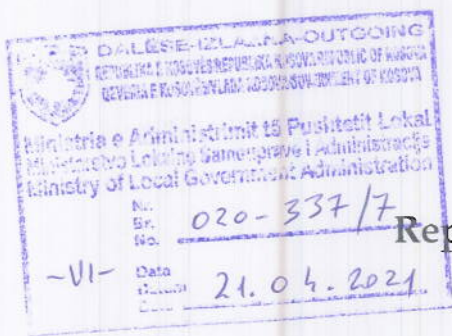 DALËSE-IZLAZNA-OUTGOING
REPUBLIKA E KOSOVËS REPUBLIKA KOSOVA REPUBLIC OF KOSOVA
QEVERIA E KOSOVËS VLADA KOSOVA GOVERNMENT OF KOSOVA
Ministria e Administrimit të Pushtetit Lokal
Ministarstvo Lokalne Samouprave i Administracije
Ministry of Local Government Administration
Nr.
Br.
No. 020-337/7
Rep
-VI- Data
21.04.2021